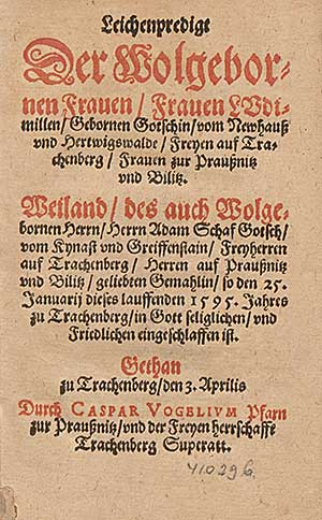 Leichenpredigt
Der Wolgebor-
nen Frauen / Frauen LVdi-
millen / Gebornen Gotschin / vom Newhauß
vnd Hertwigswalde / Freyen auf Tra-
chenberg / Frauen zur Praußnitz
vnd Bilitz.
Weiland / des auch Wolge-
bornen Herrn / Herrn Adam Schaf Gotsch /
vom Kynast vnd Greiffenstain / Freyherren
auf Trachenberg / Herren auf Praußnitz
vnd Bilitz / geliebten Gemahlin / so den 25.
Januarij dieses lauffenden 1595. Jahres
zu Trachenberg / in Gott seliglichen / vnd
Friedlichen eingeschlaffen ist.
Gethan
zu Trachenberg / den 3. Aprilis
Durch CASPAR VOGELIVM Pfarn
zur Praußnitz / vnd der Freyen herrschafft
Trachenberg Superatt.
41029 6.